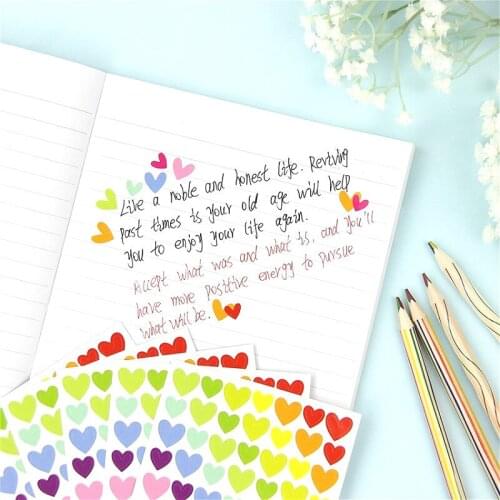 Live a noble and honest life. Reviving
past times is your old age will help
you to enjoy your life again.
Accept what was and what is, and you'll
have more positive energy to pursue
what will be.